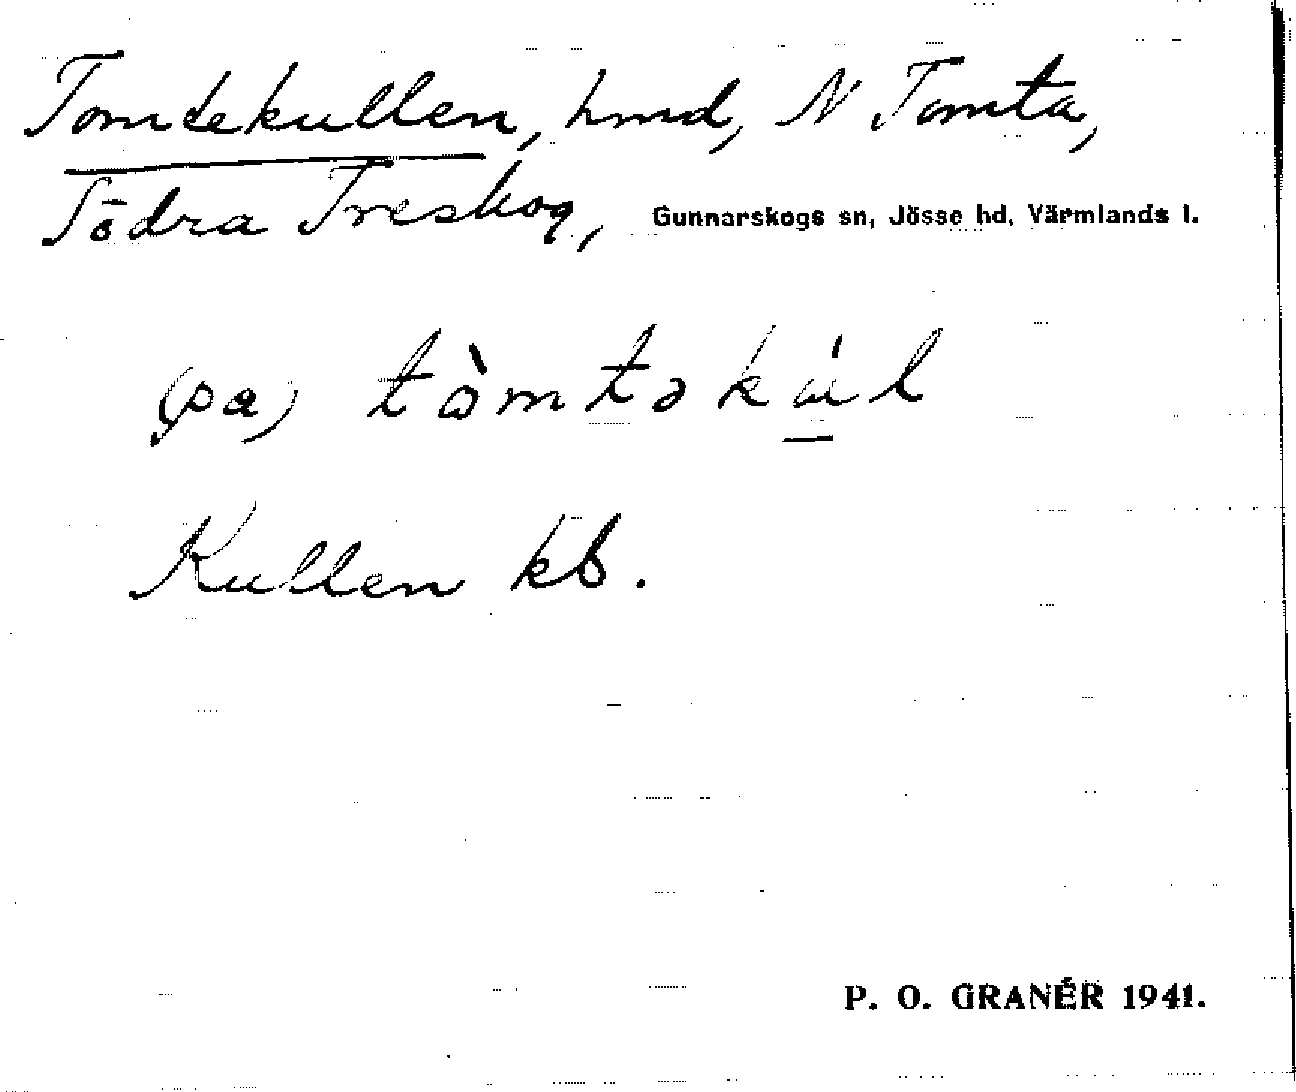 Tomtekullen, hmd, N Tomta,
Södra Treskog, Gunnarskogs sn, Jösse hd, Värmlands l.
(pa) tòmtəkúl
Kullen kb.
P. O. GRANÉR 1941.